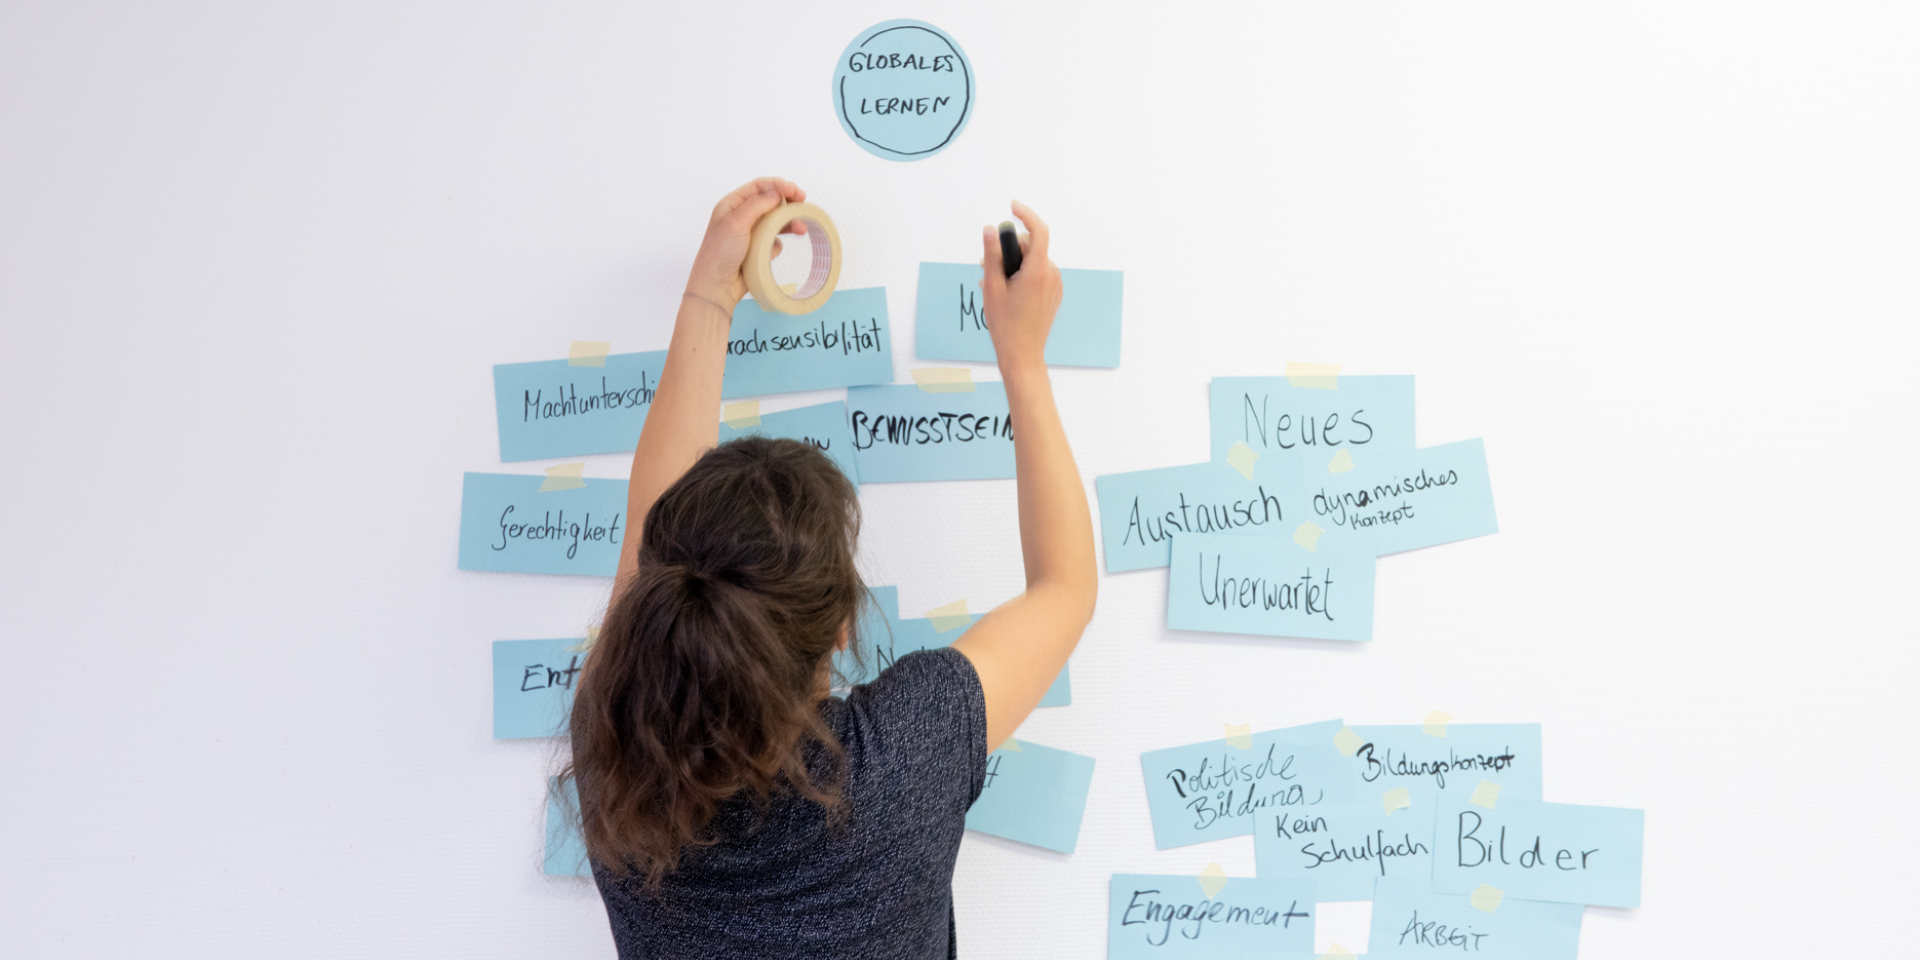 GLOBALES
LERNEN
rachsensibilität
Machtunterschi
BEWUSSTSEIN
Gerechtigkeit
Neues
Austausch
dynamisches
Konzept
Unerwartet
Ent
Politische
Bildung
Bildungskonzept
Kein
Schulfach
Bilder
Engagement
ARBEIT